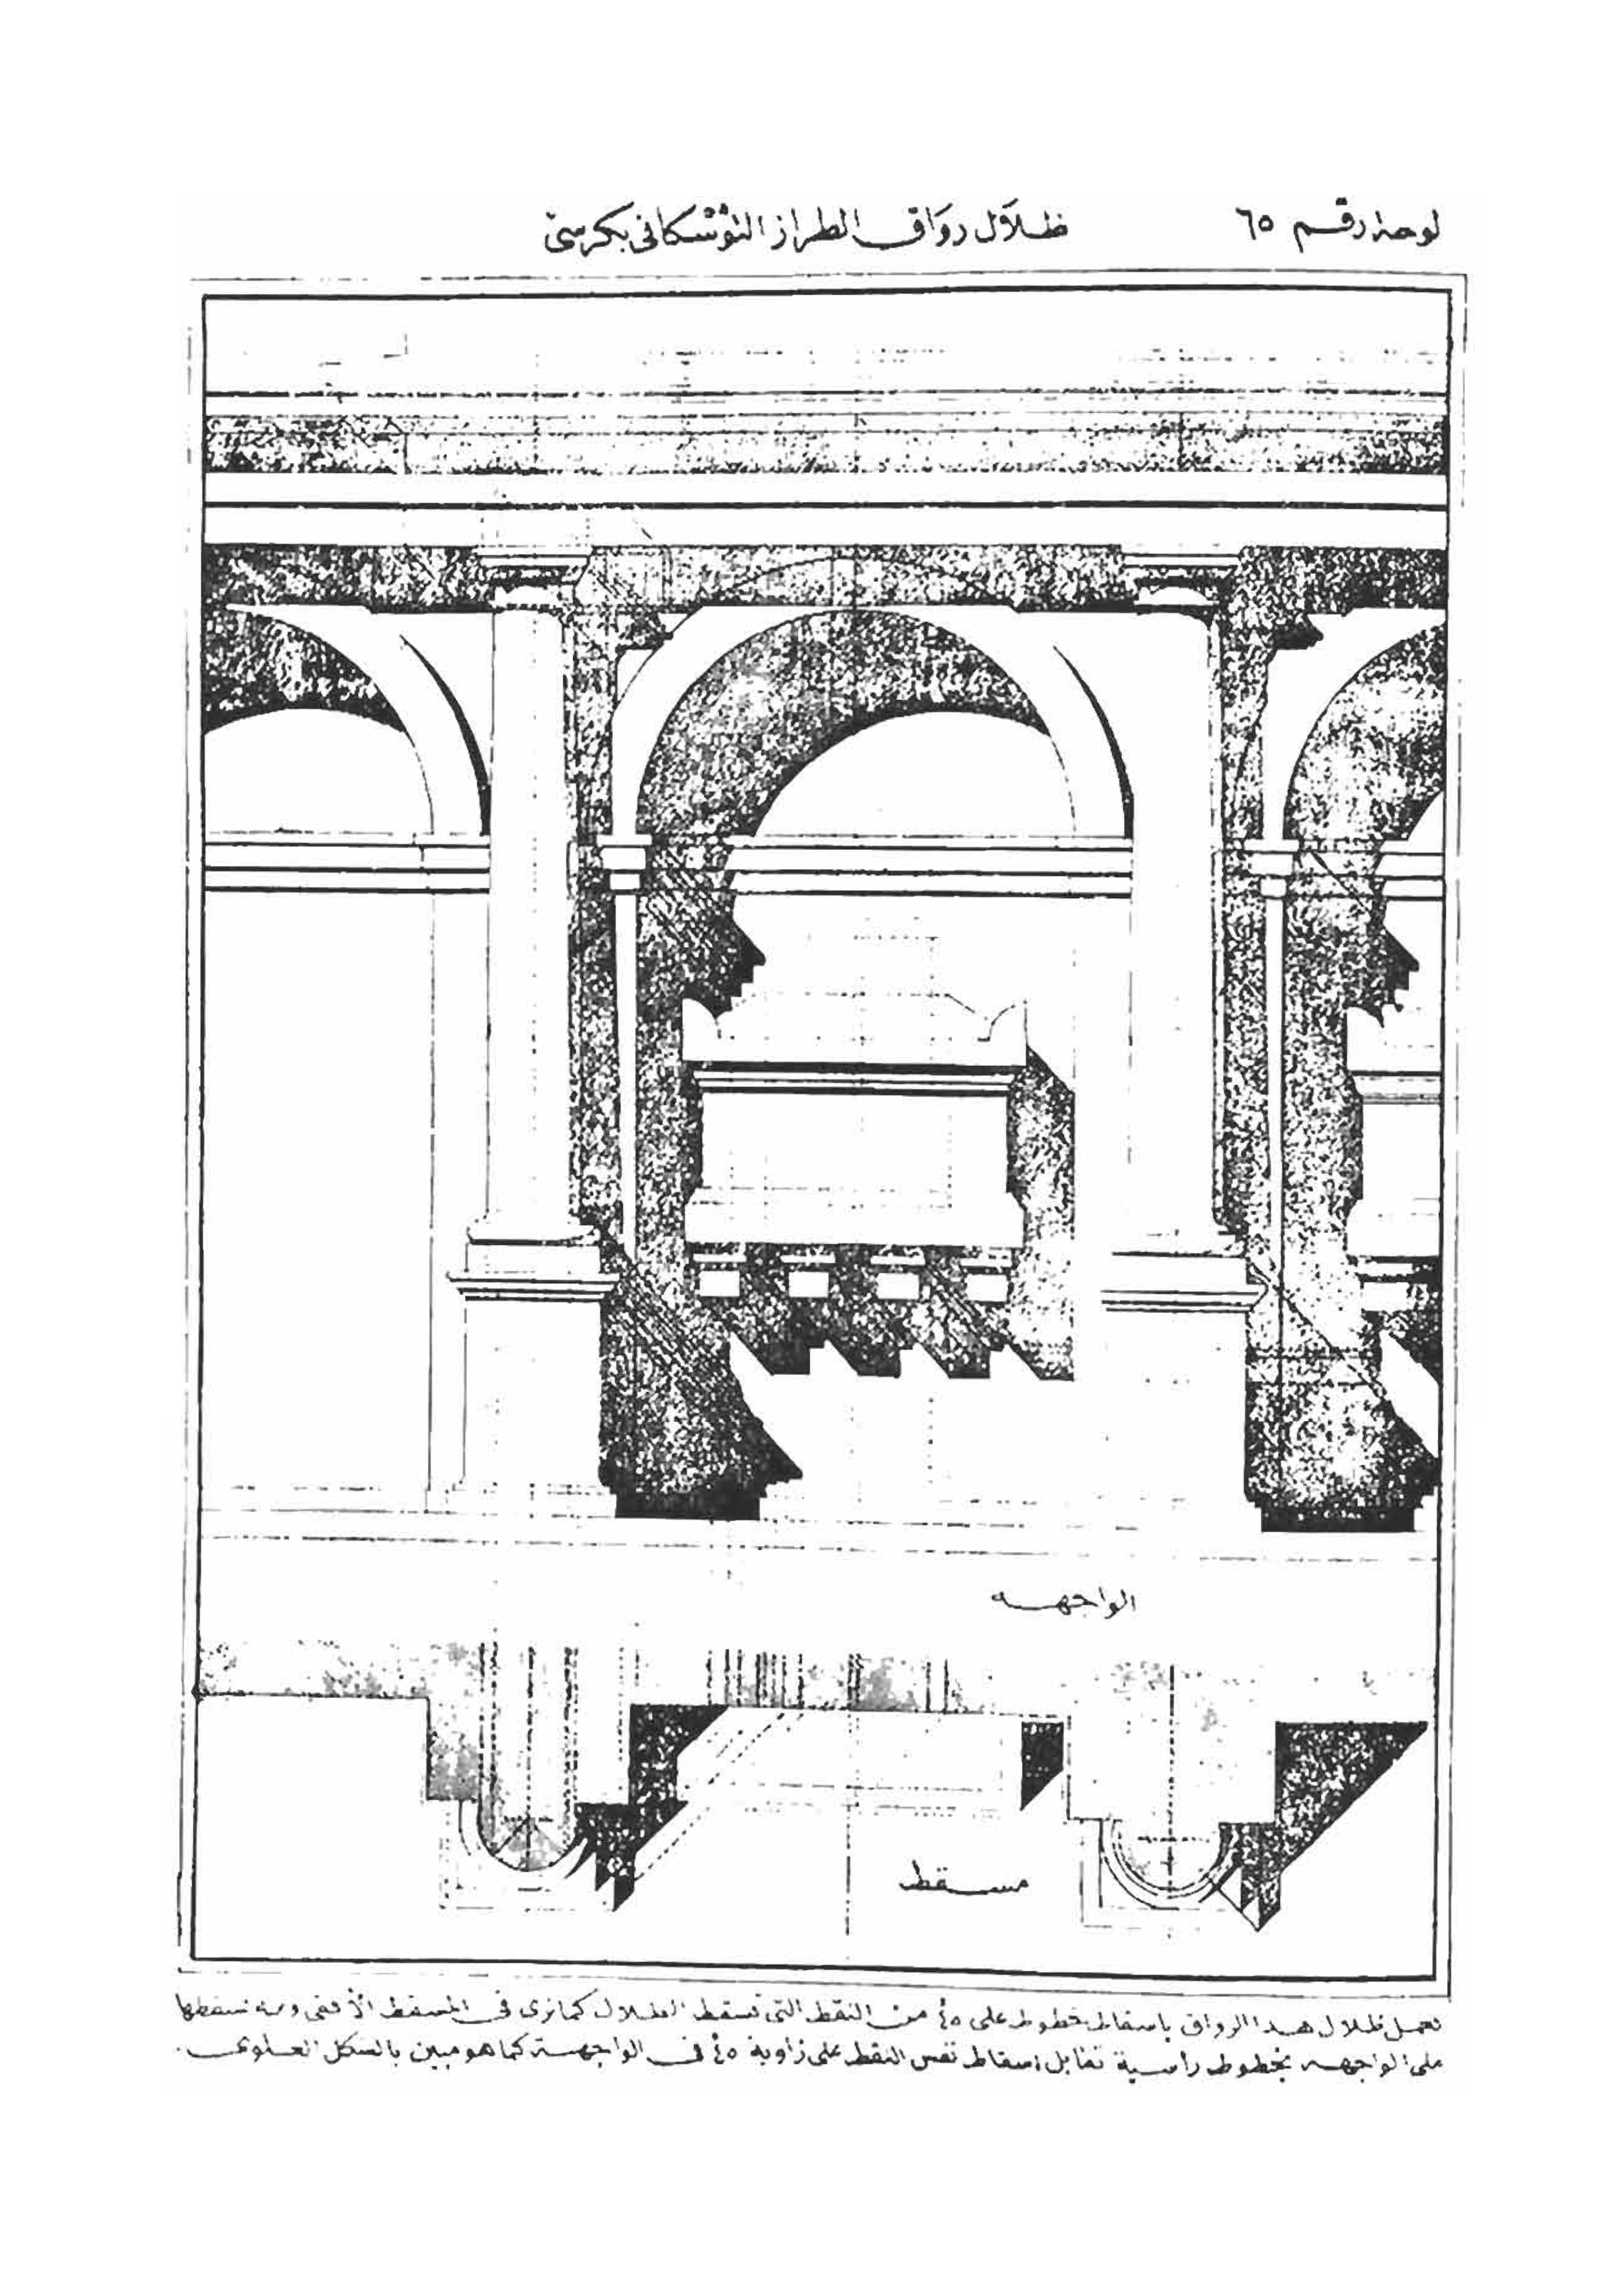 لوحة رقم ٦٥
ظلال رواق الطراز التوسكاني بكرسي
الواجهه
مسقط
تعمل ظلال هذا الرواق باسقاط خطوط على ٤٥ْ من النقط التى تسقط الظلال كما نرى فى المسقط الأفقى ومنه نسقطها
على الواجهه بخطوط رأسية تقابل اسقاط نفس النقط على زاوية ٤٥ْ فى الواجهة كما هو مبين بالشكل العلوى .